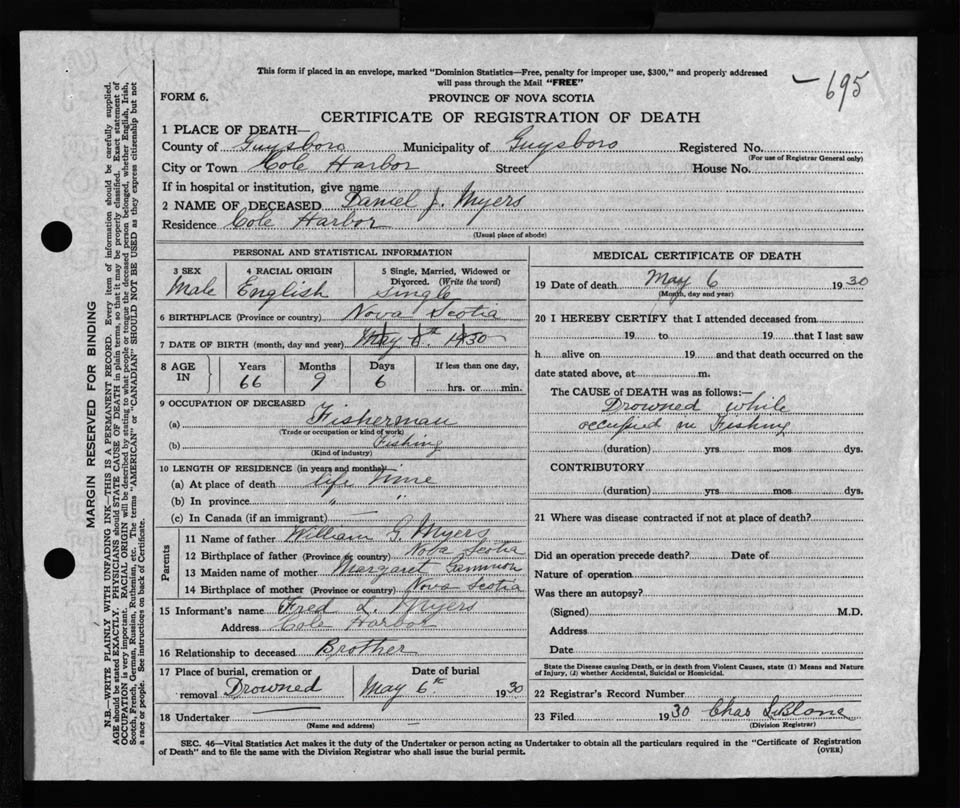 This form if placed in an envelope, marked "Dominion Statistics—Free, penalty for improper use, $300," and properly addressed
will pass through the Mail "FREE"
695
FORM 6.
PROVINCE OF NOVA SCOTIA
CERTIFICATE OF REGISTRATION OF DEATH
1 PLACE OF DEATH—
County of Guysboro Municipality of Guysboro Registered No.
(For use of Registrar General only)
City or Town Cole Harbor Street House No.
If in hospital or institution, give name
2 NAME OF DECEASED Daniel J. Myers
Residence Cole Harbor
(Usual place of abode)
PERSONAL AND STATISTICAL INFORMATION
3 SEX 4 RACIAL ORIGIN 5 Single, Married, Widowed or
Divorced. (Write the word)
Male English Single
6 BIRTHPLACE (Province or country) Nova Scotia
7 DATE OF BIRTH (month, day and year) May 6th 1930
8 AGE IN Years Months Days If less than one day,
66 9 6 hrs. or min.
9 OCCUPATION OF DECEASED
(a) Fisherman
(Trade or occupation or kind of work)
(b) Fishing
(Kind of industry)
10 LENGTH OF RESIDENCE (in years and months)
(a) At place of death life time
(b) In province " "
(c) In Canada (if an immigrant)
Parents
11 Name of father William G. Myers
12 Birthplace of father (Province or country) Nova Scotia
13 Maiden name of mother Margaret
14 Birthplace of mother (Province or country) Nova Scotia
15 Informant's name Fred L. Myers
Address Cole Harbor
16 Relationship to deceased Brother
17 Place of burial, cremation or Date of burial
removal Drowned May 6th 1930
18 Undertaker
(Name and address)
MEDICAL CERTIFICATE OF DEATH
19 Date of death May 6 1930
(Month, day and year)
20 I HEREBY CERTIFY that I attended deceased from
19 to 19 that I last saw
h alive on 19 and that death occurred on the
date stated above, at m.
The CAUSE of DEATH was as follows:—
Drowned while
occupied in Fishing
(duration) yrs mos dys.
CONTRIBUTORY
(duration) yrs mos dys.
21 Where was disease contracted if not at place of death?
Did an operation precede death? Date of
Nature of operation
Was there an autopsy?
(Signed) M.D.
Address
Date
State the Disease causing Death, or in death from Violent Causes, state (1) Means and Nature
of Injury, (2) whether Accidental, Suicidal or Homicidal.
22 Registrar's Record Number
23 Filed 1930 Chas LeBlanc
(Division Registrar)
SEC. 46—Vital Statistics Act makes it the duty of the Undertaker or person acting as Undertaker to obtain all the particulars required in the "Certificate of Registration
of Death" and to file same with the Division Registrar who shall issue the burial permit. (OVER)
MARGIN RESERVED FOR BINDING
N.B.—WRITE PLAINLY WITH UNFADING INK—THIS IS A PERMANENT RECORD. Every item of information should be carefully supplied.
AGE should be stated EXACTLY. PHYSICIANS should STATE CAUSE OF DEATH in plain terms, so that it may be properly classified. Exact statement of
OCCUPATION is very important. RACIAL ORIGIN will be described by stating to what people or tongue the deceased person belonged, whether English, Irish,
Scotch, French, German, Russian, Ruthenian, etc. The terms "AMERICAN" or "CANADIAN" SHOULD NOT BE USED as they express citizenship but not
a race or people. See instructions on back of Certificate.